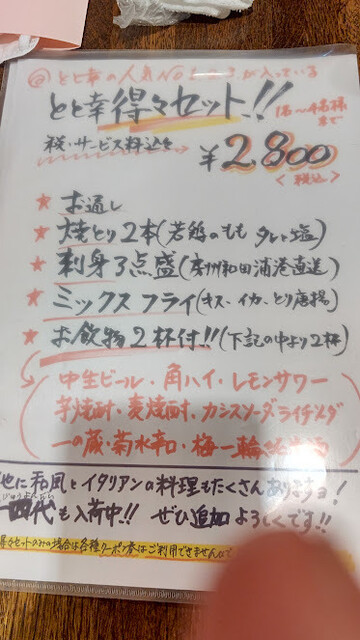 とと幸の人気No1, 2, 3が入っている
とと幸得々セット!!
1名〜4名様まで
税・サービス料込みで
¥2,800
<税込>
★ お通し
★ 焼とり2本(若鶏のもも タレと塩)
★ 刺身3点盛(房州和田浦港直送)
★ ミックスフライ(キス・イカ、とり唐揚)
★ お飲物2杯付!!(下記の中より2杯)
中生ビール・角ハイ・レモンサワー
芋焼酎・麦焼酎・カシスソーダ・ライチソーダ
一の蔵・菊水辛口・梅一輪
他に和風とイタリアンの料理もたくさんありますョ!
十四代も入荷中!! ぜひ追加よろしくです!!
セットのみの場合は各種クーポン券はご利用できませんので